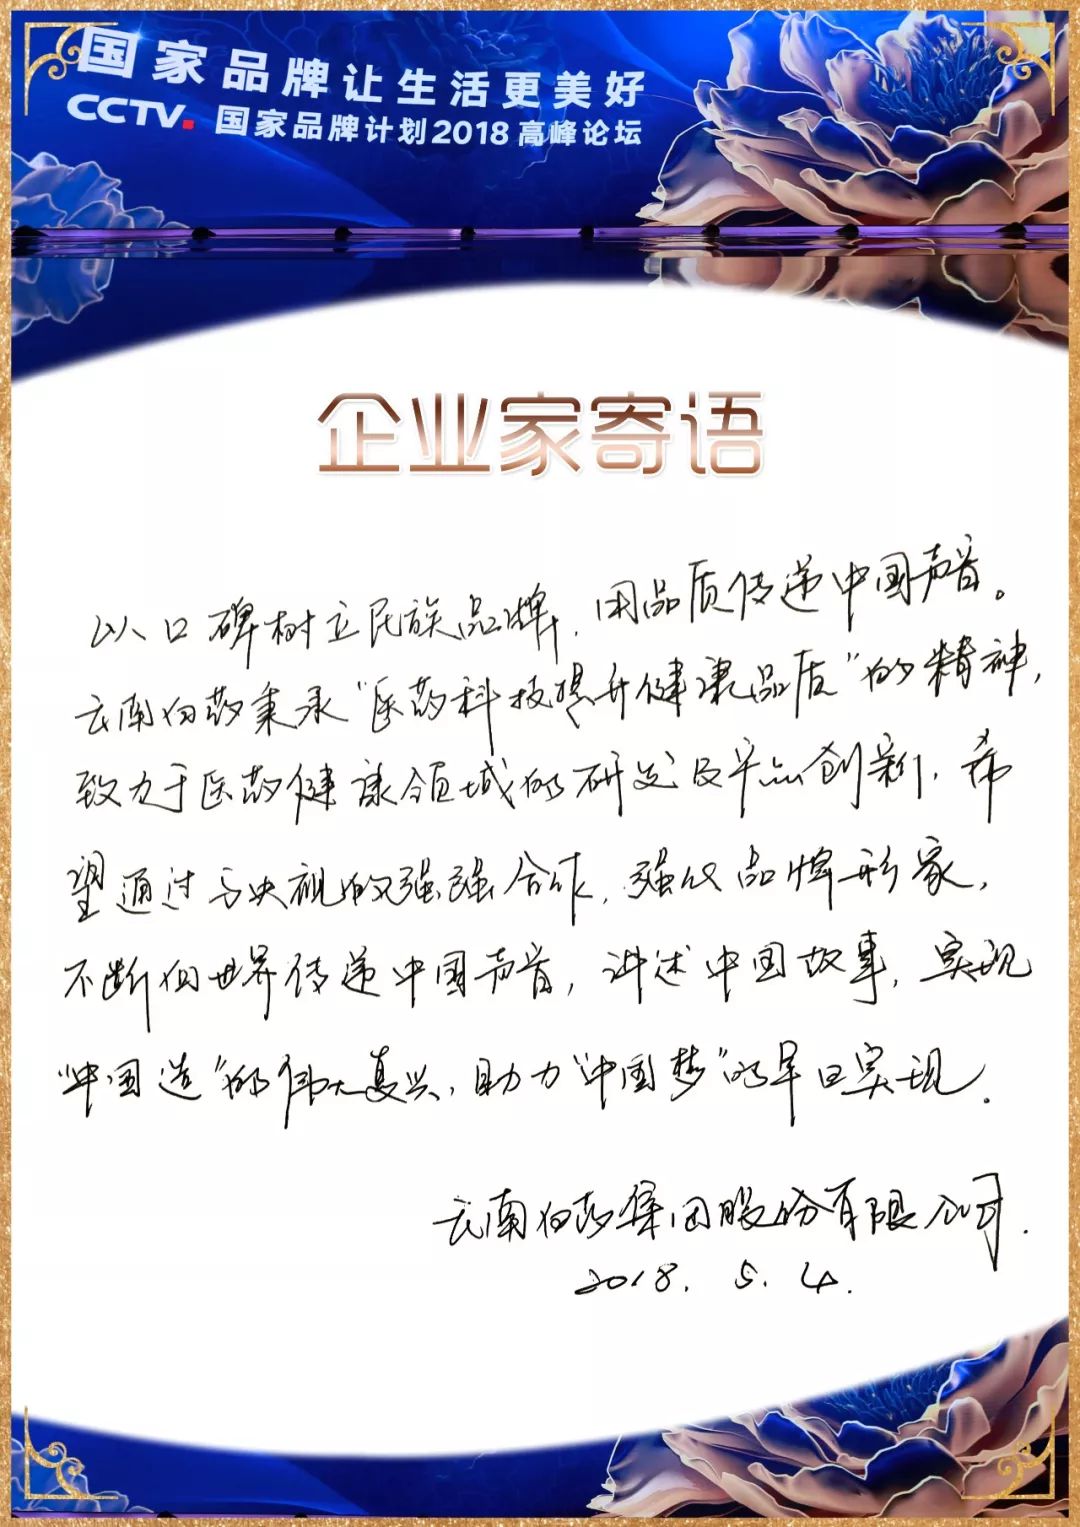 国家品牌让生活更美好
CCTV. 国家品牌计划2018高峰论坛
企业家寄语
以口碑树立民族品牌,用品质传递中国声音。
云南白药秉承“医药科技提升健康品质”的精神,
致力于医药健康领域的研发及产品创新,希
望通过与央视的强强合作,强化品牌形象,
不断向世界传递中国声音,讲述中国故事,实现
“中国造”的伟大复兴,助力“中国梦”的早日实现.
云南白药集团股份有限公司.
2018.5.4.